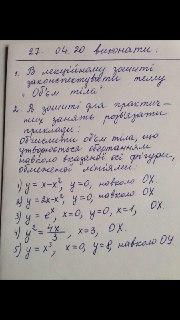 27. 04. 20 виконати:
1. В лекційному зошиті
законспектувати тему
"Об'єм тіла"
2. В зошиті для практич-
них занять розв'язати
приклади:
Обчислити об'єм тіла, що
утворюється обертанням
навколо вказаної осі фігури,
обмеженої лініями:
1) y = x-x², y=0, навколо OX.
2) y = 3x-x², y=0, навколо OX
3) y = eˣ, x=0, y=0, x=1, OX.
4) y² = 4x/3, x=3, OX.
5) y = x³, x=0, y=8, навколо OY